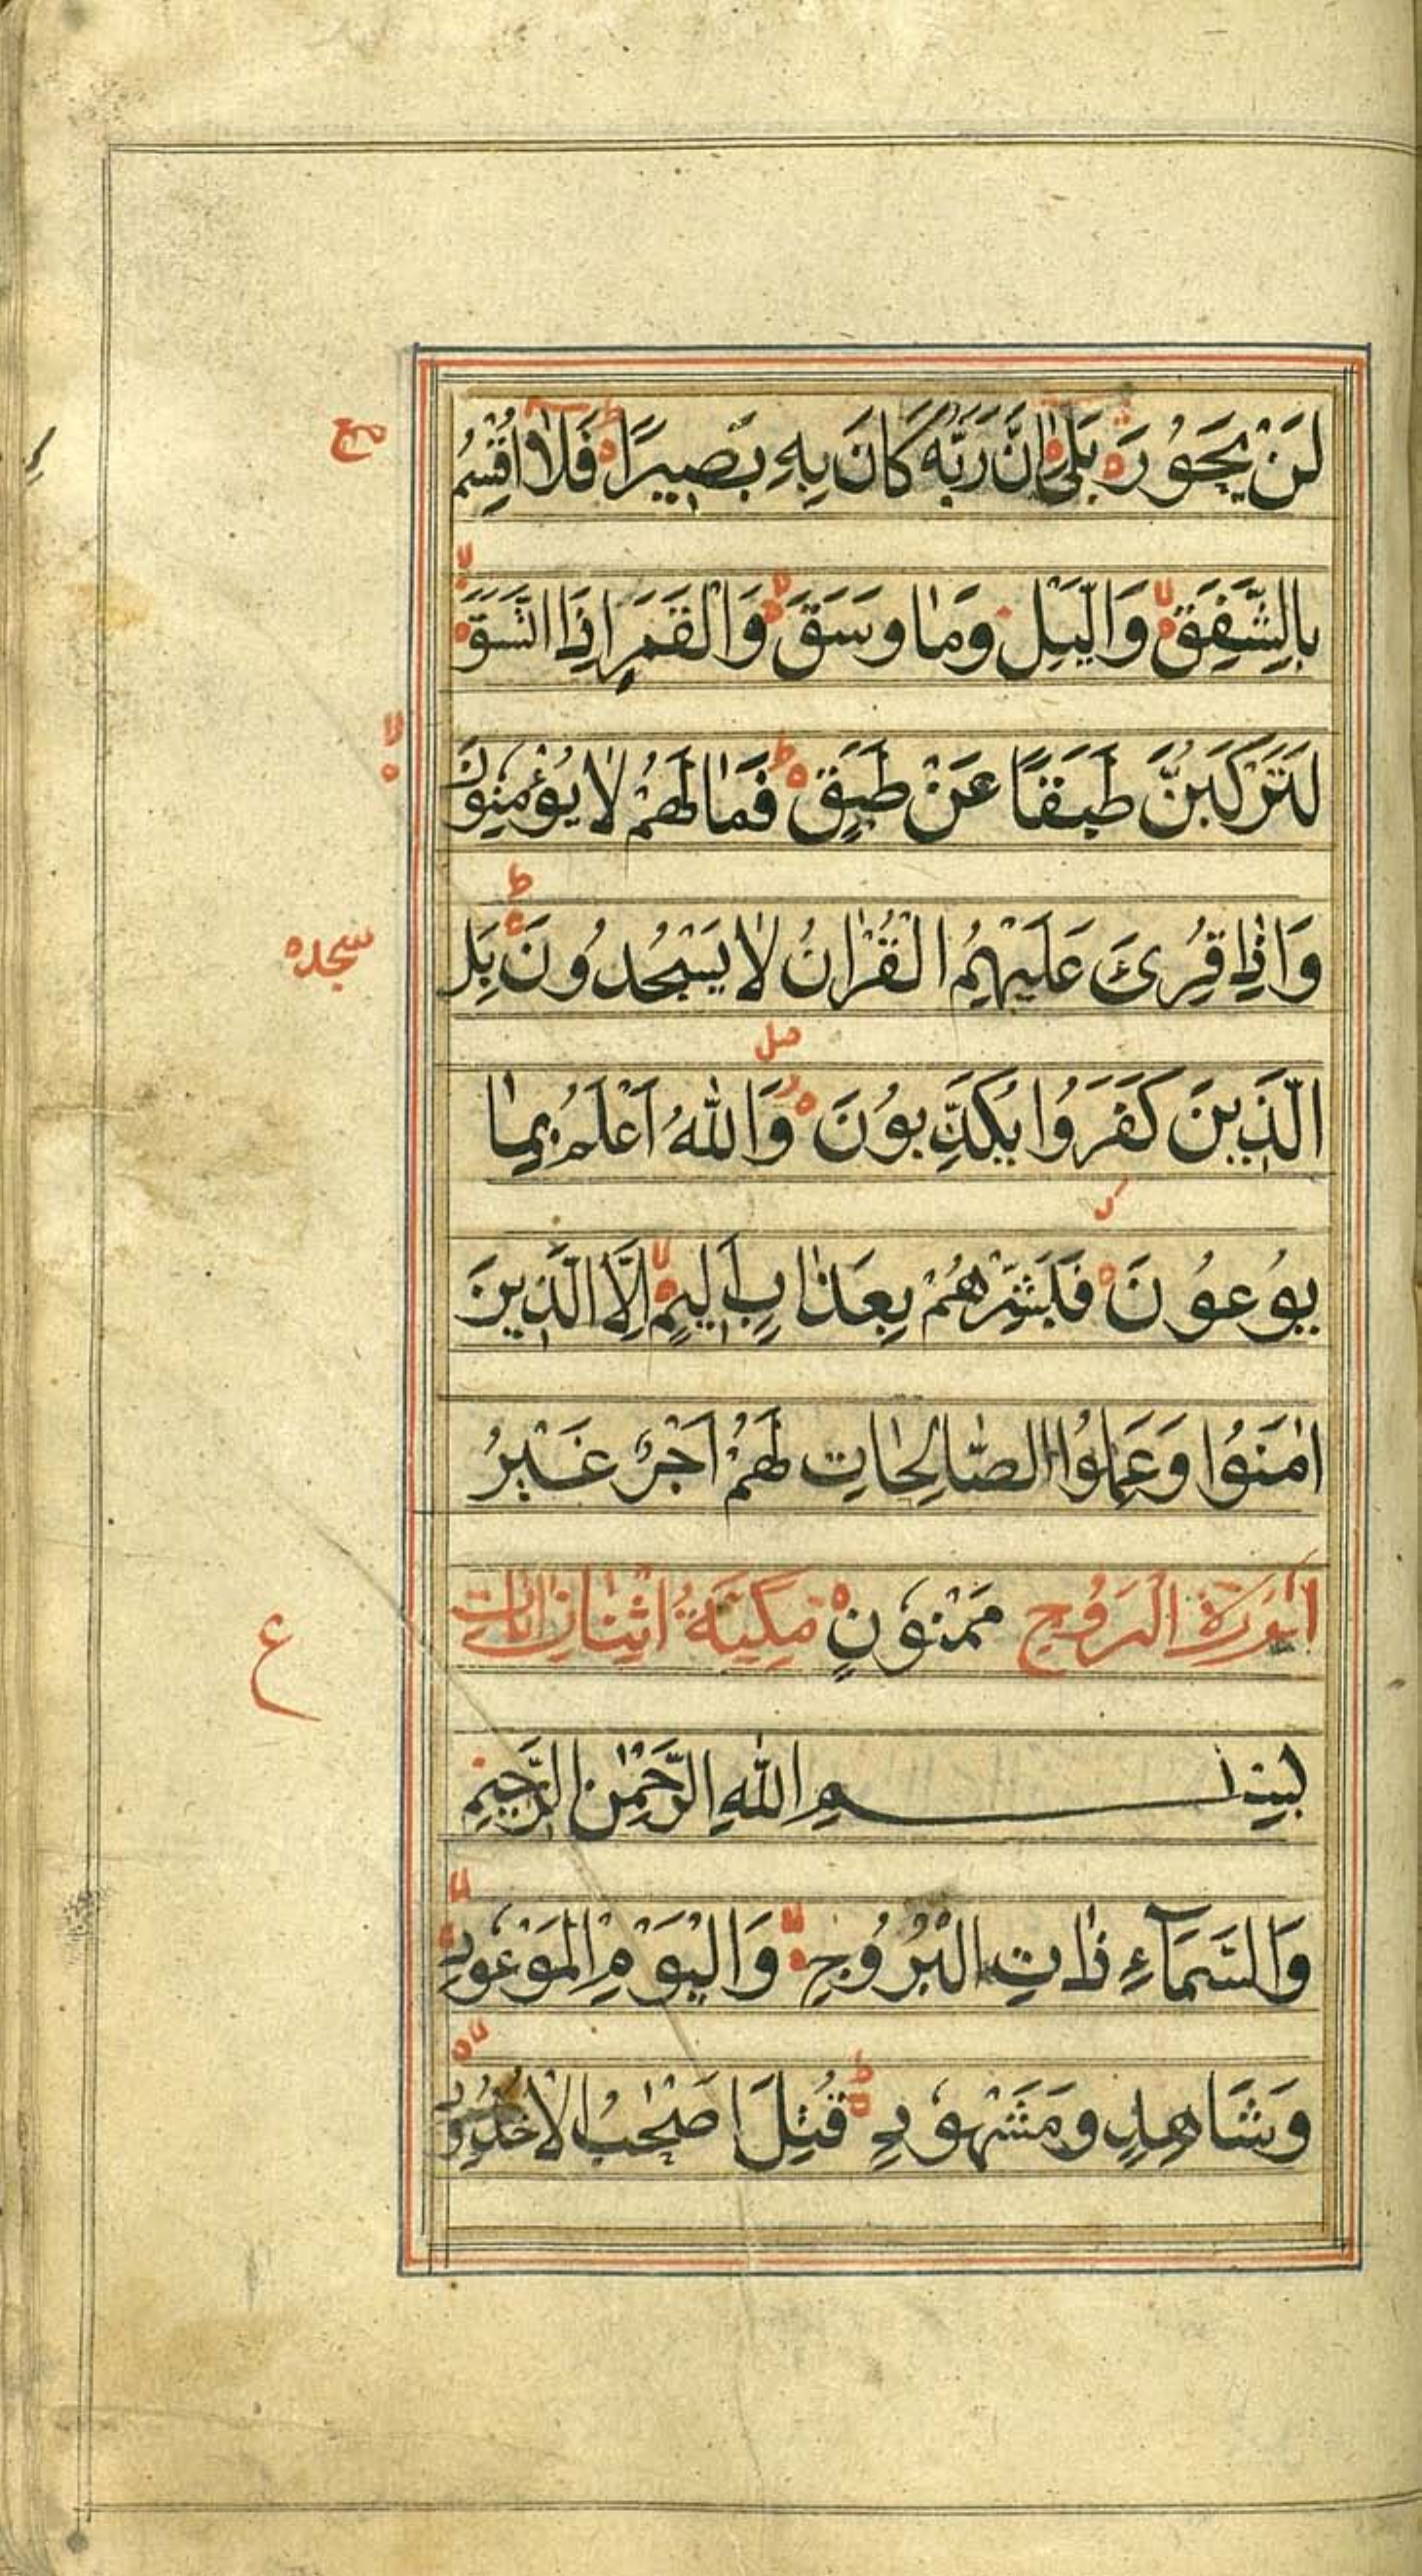 لَنْ يَحُوْرَ بَلٰى اِنَّ رَبَّهٗ كَانَ بِهٖ بَصِيْرًا فَلَا اُقْسِمُ
مع
بِالشَّفَقِ وَالَّيْلِ وَمَا وَسَقَ وَالْقَمَرِ اِذَا اتَّسَقَ
لا
لَتَرْكَبُنَّ طَبَقًا عَنْ طَبَقٍ فَمَا لَهُمْ لَا يُؤْمِنُوْنَ
وَاِذَا قُرِئَ عَلَيْهِمُ الْقُرْاٰنُ لَا يَسْجُدُوْنَ بَلِ
سجده
الَّذِيْنَ كَفَرُوْا يُكَذِّبُوْنَ وَاللّٰهُ اَعْلَمُ بِمَا
يُوْعُوْنَ فَبَشِّرْهُمْ بِعَذَابٍ اَلِيْمٍ اِلَّا الَّذِيْنَ
اٰمَنُوْا وَعَمِلُوا الصَّالِحَاتِ لَهُمْ اَجْرٌ غَيْرُ
سُوْرَةُ الْبُرُوْجِ مَمْنُوْنٍ مَكِّيَّةٌ اثْنَان
ع
بِسْمِ اللّٰهِ الرَّحْمٰنِ الرَّحِيْمِ
وَالسَّمَآءِ ذَاتِ الْبُرُوْجِ وَالْيَوْمِ الْمَوْعُوْدِ
وَشَاهِدٍ وَمَشْهُوْدٍ قُتِلَ اَصْحٰبُ الْاُخْدُوْدِ